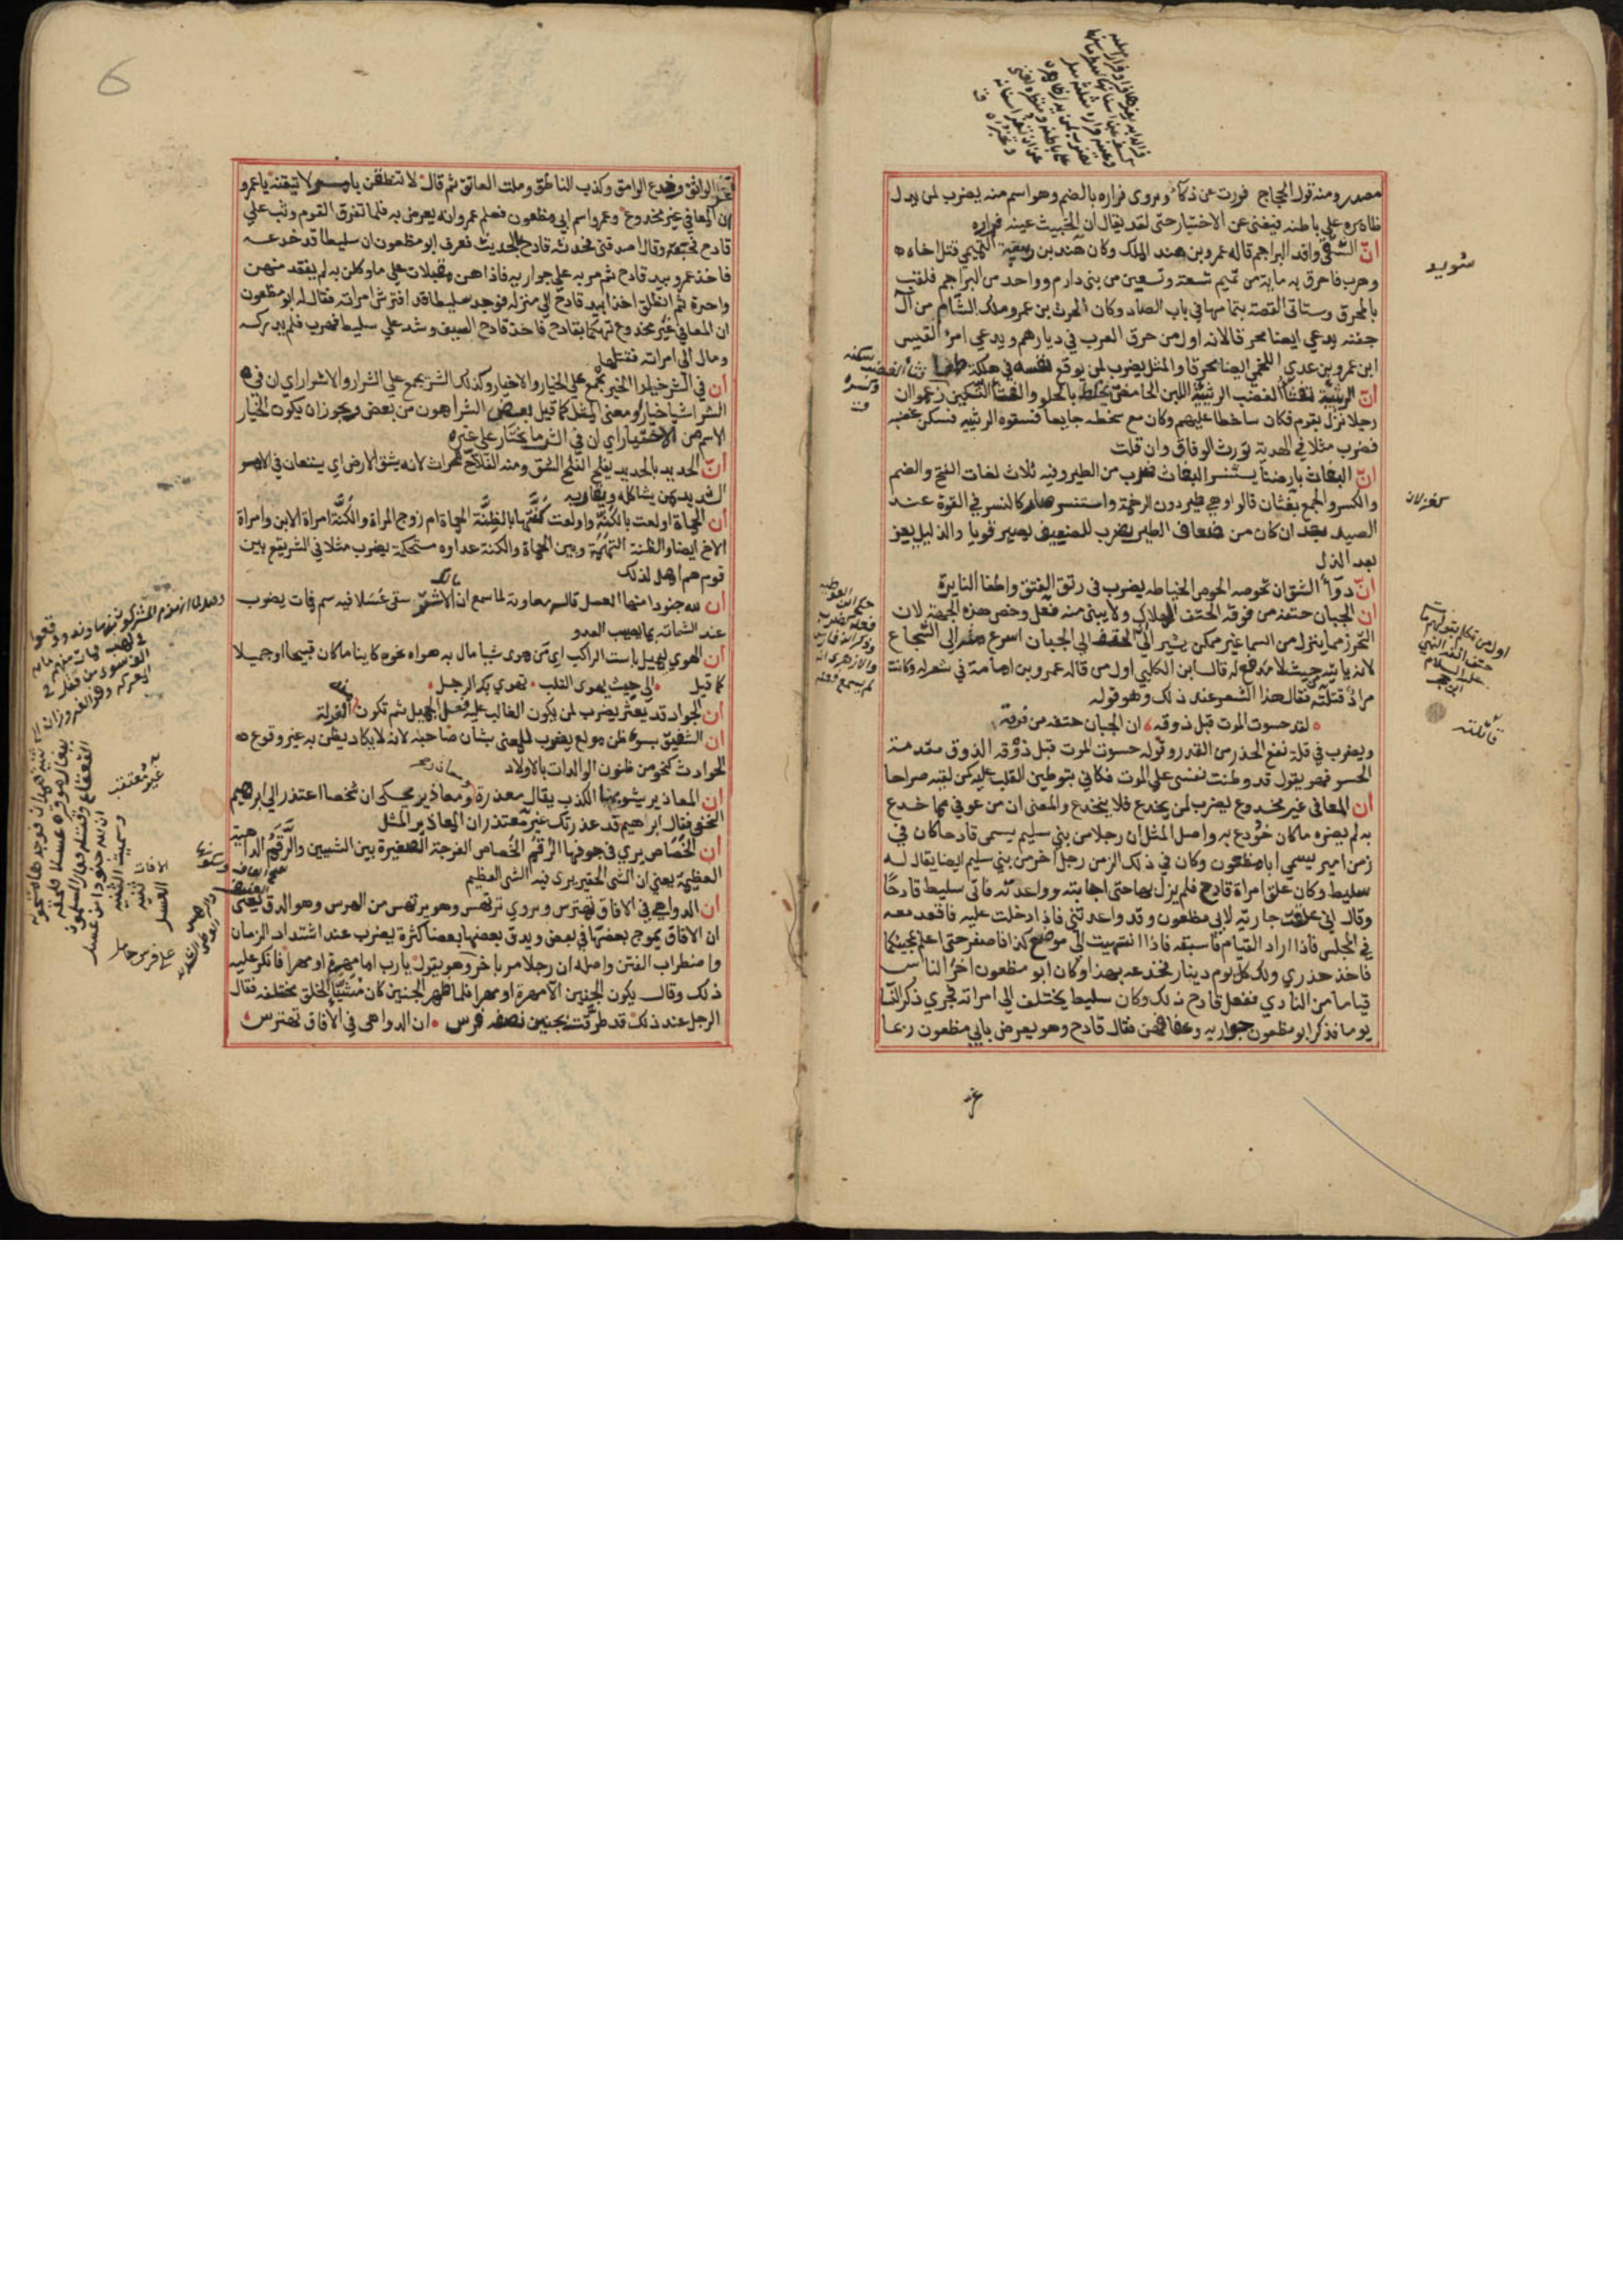 مصدر ومنه قول الحجاج فررت عن ذكآء ويروى فراره بالضم وهو اسم منه يضرب لمن يدل
ظاهره على باطنه فيغنى عن الاختبار حتى لقد يقال ان الخبيث عينه فراره
انّ الشقى وافد البراجم قاله عمرو بن هند الملك وكان هند بن ربيعة التميمي قتل اخاه
وهرب فاحرق به ماية من تميم تسعة وتسعين من بني دارم وواحد من البراجم فلقب
بالمحرق وستاتى القصة بتمامها في باب الصاد وكان الحرث بن عمرو ملك الشام من آل
جفنه يدعي ايضا محرقا لانه اول من حرق العرب في ديارهم ويدعي امرؤ القيس
ابن عمرو بن عدي اللخمي ايضا محرقا والمثل يضرب لمن يوقع نفسه في هلكة طمعا
انّ الرثيئة تفثأ الغضب الرثيئة اللبن الحامض يخلط بالحلو والفثأ التسكين زعموا ان
رجلا نزل بقوم فكان ساخطا عليهم وكان مع سخطه جايعا فسقوه الرثيه فسكن غضبه
فضرب مثلا في الهدية تورث الوفاق وان قلت
انّ البغاث بارضنا يستنسر البغاث ضرب من الطير وفيه ثلاث لغات الفتح والضم
والكسر والجمع بغثان قالوا وهي طير دون الرخمة واستنسر صار كالنسر في القوة عند
الصيد بعد ان كان من ضعاف الطير يضرب للضعيف يصير قويا والذليل يعز
بعد الذل
انّ دوآء الشق ان تحوصه الحوص الخياطه يضرب في رتق الفتق واطفا النايرة
ان الجبان حتفه من فوقه الحتف الهلاك ولا يبنى منه فعل وخص هذه الجهة لان
التحرز مما ينزل من السما غير ممكن يشير الى الحتف الى الجبان اسرع منه الى الشجاع
لانه ياتيه حيث لا مدفع له قال ابن الكلبي اول من قاله عمرو بن امامة في شعر له وكانت
مراد قتلته فقال هذا الشعر عند ذلك وهو قوله
لقد حسوت الموت قبل ذوقه ان الجبان حتفه من فوقه
ويضرب في قلة نفع الحذر من القدر وقوله حسوت الموت قبل ذوقه الذوق مقدمة
الحسو فهو يقول قد وطنت نفسى على الموت فكاني بتوطين القلب عليه كمن لقيه صراحا
ان المعافى غير مخدوع يضرب لمن يخدع فلا ينخدع والمعنى ان من عوفي مما خدع
به لم يضره ما كان خودع به واصل المثل ان رجلا من بني سليم يسمى قادحا كان في
زمن امير يسمي ابا مظعون وكان في ذلك الزمن رجل اخر من بني سليم ايضا يقال له
سليط وكان علق امراة قادح فلم يزل بها حتى اجابته وواعدته فاتى سليط قادحًا
وقال اني علقت جارية لابي مظعون وقد واعدتني فاذا دخلت عليه فاقعد معه
في المجلس فاذا اراد القيام فاسبقه فاذا انتهيت الى موضع كذا فاصفر حتى اعلم بمجيئكما
فاخذ حذري ولك كل يوم دينار فخدعه بهذا وكان ابو مظعون اخر الناس
قياما من النادي ففعل قادح ذلك وكان سليط يختلف الى امراته فجري ذكر النسا
يوما فذكر ابو مظعون جواريه وعفافهن فقال قادح وهو يعرض بابي مظعون ربما
شويد
كغزلان
اول من تكلم بقولهم مات
حتف انفه النبي
عليه السلام
قاتلته
6
غر الواثق وخدع الوامق وكذب الناطق وملت العاتق ثم قال لا تنطقن بامر لا تيقنه يا عمرو
ان المعافي غير مخدوع وعمرو اسم ابي مظعون فعلم عمرو انه يعرض به فلما تفرق القوم وثب على
قادح فخنقه وقال اصدقني فحدثه قادح بالحديث فعرف ابو مظعون ان سليطا قد خدعه
فاخذ عمرو بيد قادح ثم مر به على جواريه فاذا هن مقبلات على ما وكلن به لم يفقد منهن
واحدة ثم انطلق اخذا بيد قادح الى منزله فوجد سليطا قد افترش امراته فقال له ابو مظعون
ان المعافى غير مخدوع تهكما بقادح فاخذ قادح السيف وشد على سليط فهرب فلم يدركه
ومال الى امراته فقتلها
ان في الشر خيارا الخير يجمع على الخيار والاخيار وكذلك الشر يجمع على الشرار والاشرار اي ان في
الشر اشيا خيارا ومعنى المثل كما قيل بعض الشر اهون من بعض ويجوز ان يكون الخيار
الاسم من الاختيار اي ان في الشر ما يختار على غيره
انّ الحديد بالحديد يفلح الفلح الشق ومنه الفلاّح للحراث لانه يشق الارض اي يستعان في الامر
الشديد بمن يشاكله ويقاويه
ان الحماة اولعت بالكنة واولعت كنتها بالظنة الحماة ام زوج المراة والكنة امراة الابن وامراة
الاخ ايضا والظنة التهمة وبين الحماة والكنة عداوه مستحكمة يضرب مثلا في الشر يقع بين
قوم هم اهل لذلك
ان لله جنودا منها العسل قاله معاوية لما سمع ان الاشتر سقى عسلا فيه سم فمات يضرب
عند الشماتة بما يصيب العدو
ان الهوي ليميل باست الراكب اي من هوى شيا مال به هواه نحوه كاينا ما كان قبيحا او جميلا
كما قيل الى حيث يهوى القلب تهوي به الرجل
ان الجواد قد يعثر يضرب لمن يكون الغالب عليه فعل الجميل ثم تكون منه الزلة
ان الشفيق بسوء ظن مولع يضرب للمعنى بشان صاحبه لانه لا يكاد يظن به غير وقوع
الحوادث كنحو من ظنون الوالدات بالاولاد
ان المعاذير يشوبها الكذب يقال معذرة ومعاذير يحكى ان شخصا اعتذر الى ابراهيم
النخعي فقال ابراهيم قد عذرتك غير معتذر ان المعاذير المثل
ان الخصاص يري في جوفها الرقم الخصاص الفرجة الصغيرة بين الشيين والرقم الداهية
العظيمة يعني ان الشي الحقير يرى فيه الشي العظيم
ان الدواهي في الافاق تهترس ويروي ترتهس وهو يرتهس من الهرس وهو الدق يعني
ان الافاق يموج بعضها في بعض ويدق بعضها بعضا كثرة يضرب عند اشتداد الزمان
واضطراب الفتن واصله ان رجلا مر باخر وهو يقول يا رب اما مهرة او مهرا فانكر عليه
ذلك وقال يكون الجنين الا مهرة او مهرا فلما ظهر الجنين كان مشيّا الخلق مختلفه فقال
الرجل عند ذلك قد طرقت بجنين نصفه فرس ان الدواهى في الافاق تهترس
غير معتذر
وسميت الثنية
ثنية
العسل
على فرس حامل